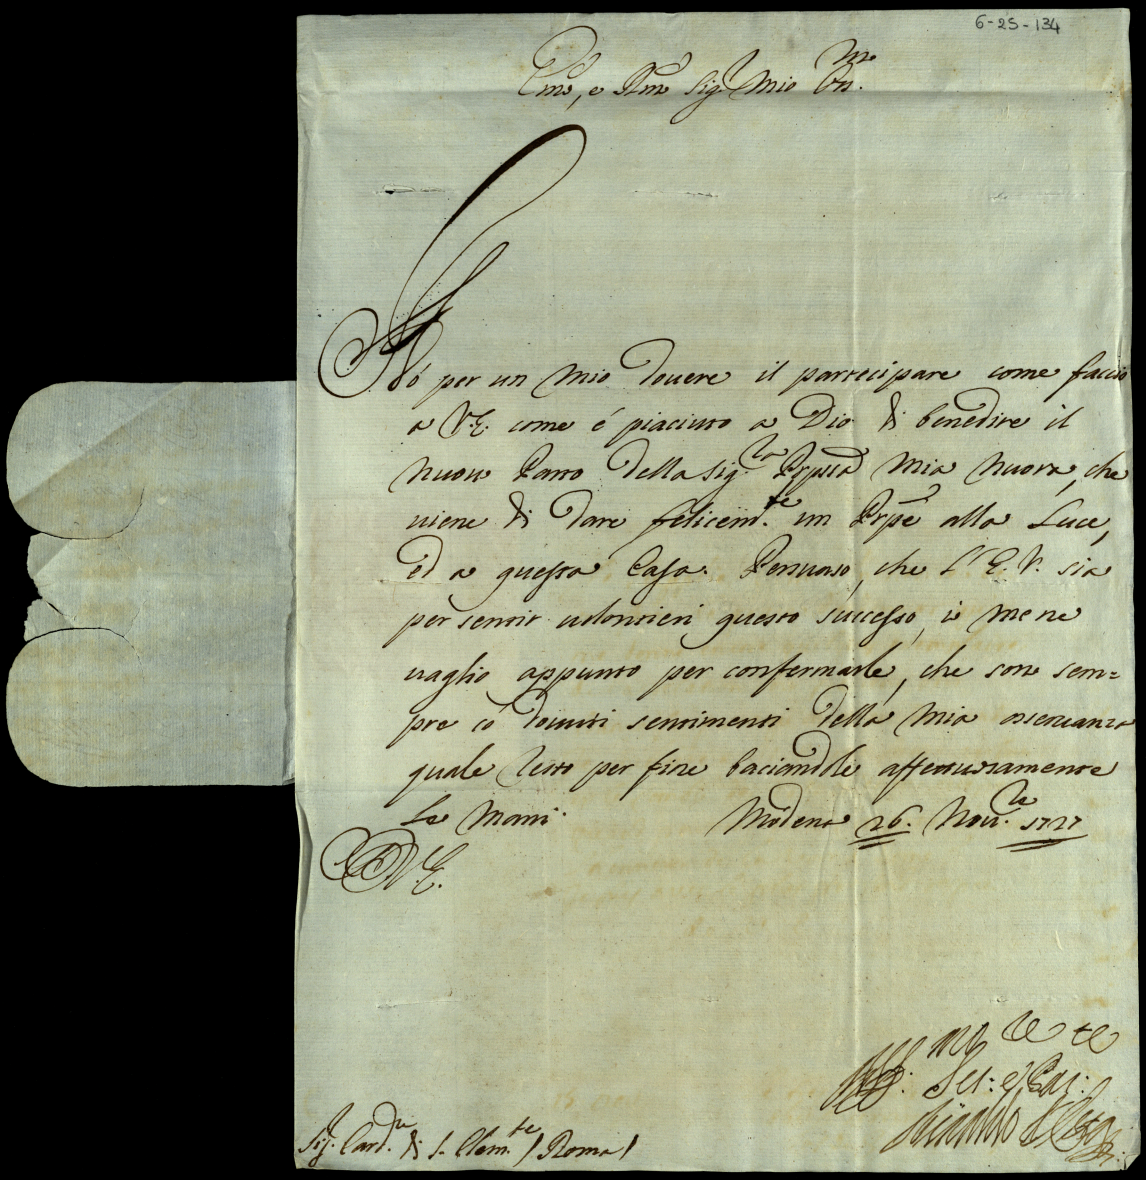 6-25-134
Emõ, e Rmõ Sig.r Mio Oss.mo
Hò per un mio douere il partecipare come faccio
a V.E. come é piaciuto a Dio di benedire il
nuouo Parto della Sig.ra Prpssa mia nuora, che
uiene di dare felicem.te un Prpe alla Luce,
ed a questa Casa. Persuaso, che l'E.V. sia
per sentir uolontieri questo successo, io me ne
uaglio appunto per confermarle, che sono sem=
pre có douuti sentimenti della mia osseruanza
quale resto per fine baciandole affettuosamente
le mani. Modena 26. Nou.re 1727
D.V.E.
Aff.mo
Ser: e Par:
Rinaldo d'Este
Sig. Card.le di S. Clem.te / Roma /